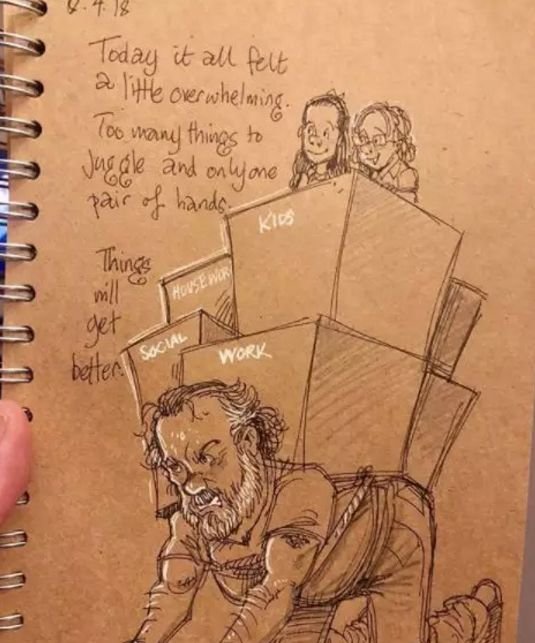 8.4.18
Today it all felt
a little overwhelming.
Too many things to
juggle and only one
pair of hands.
Things
will
get
better.
KIDS
HOUSEWOR
SOCIAL
WORK